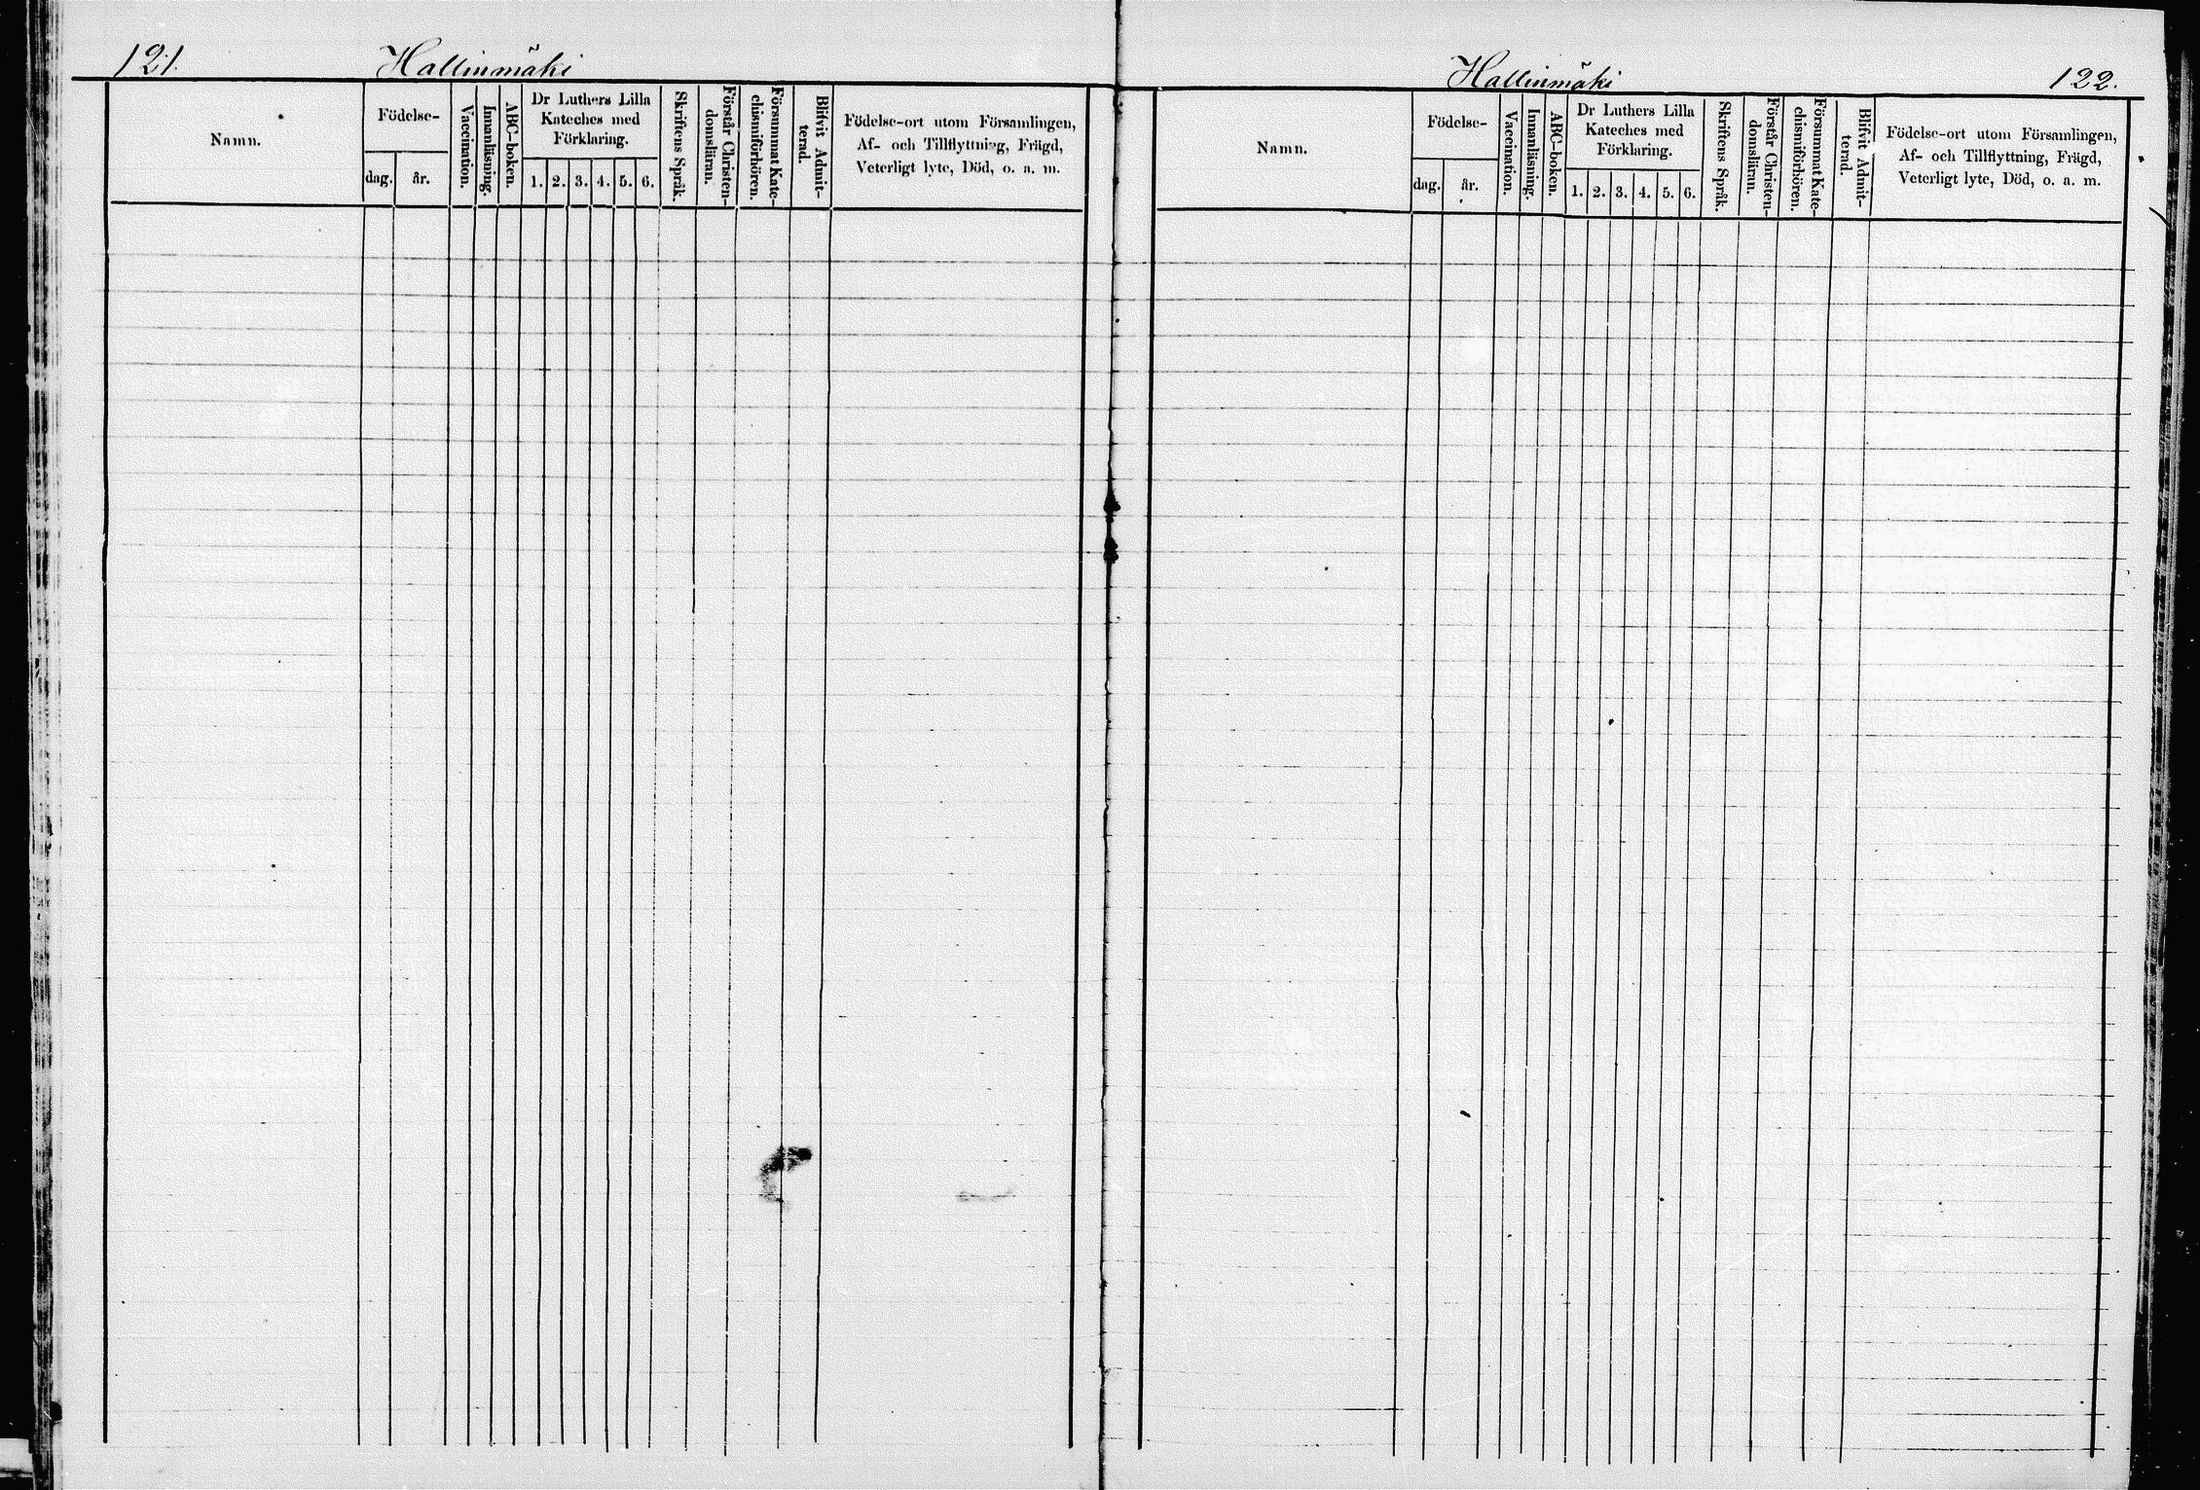 121.
Hallinmäki
Namn.
Födelse-
dag.
år.
Vaccination.
Innanläsning.
ABC-boken.
Dr Luthers Lilla
Kateches med
Förklaring.
1. 2. 3. 4. 5. 6.
Skriftens Språk.
Förstår Christen-
domsläran.
Försummat Kate-
chismiförhören.
Blifvit Admit-
terad.
Födelse-ort utom Församlingen,
Af- och Tillflyttning, Frägd,
Veterligt lyte, Död, o. a. m.
Hallinmäki
122.
Namn.
Födelse-
dag.
år.
Vaccination.
Innanläsning.
ABC-boken.
Dr Luthers Lilla
Kateches med
Förklaring.
1. 2. 3. 4. 5. 6.
Skriftens Språk.
Förstår Christen-
domsläran.
Försummat Kate-
chismiförhören.
Blifvit Admit-
terad.
Födelse-ort utom Församlingen,
Af- och Tillflyttning, Frägd,
Veterligt lyte, Död, o. a. m.